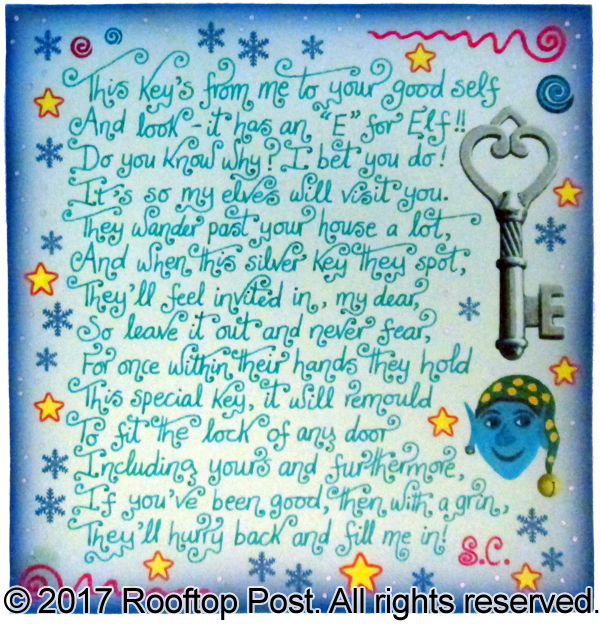 This key's from me to your good self
And look - it has an "E" for Elf!!
Do you know why? I bet you do!
It's so my elves will visit you.
They wander past your house a lot,
And when this silver key they spot,
They'll feel invited in, my dear,
So leave it out and never fear,
For once within their hands they hold
This special key, it will remould
To fit the lock of any door
Including yours and furthermore,
If you've been good, then with a grin,
They'll hurry back and fill me in!
S.C.
© 2017 Rooftop Post. All rights reserved.